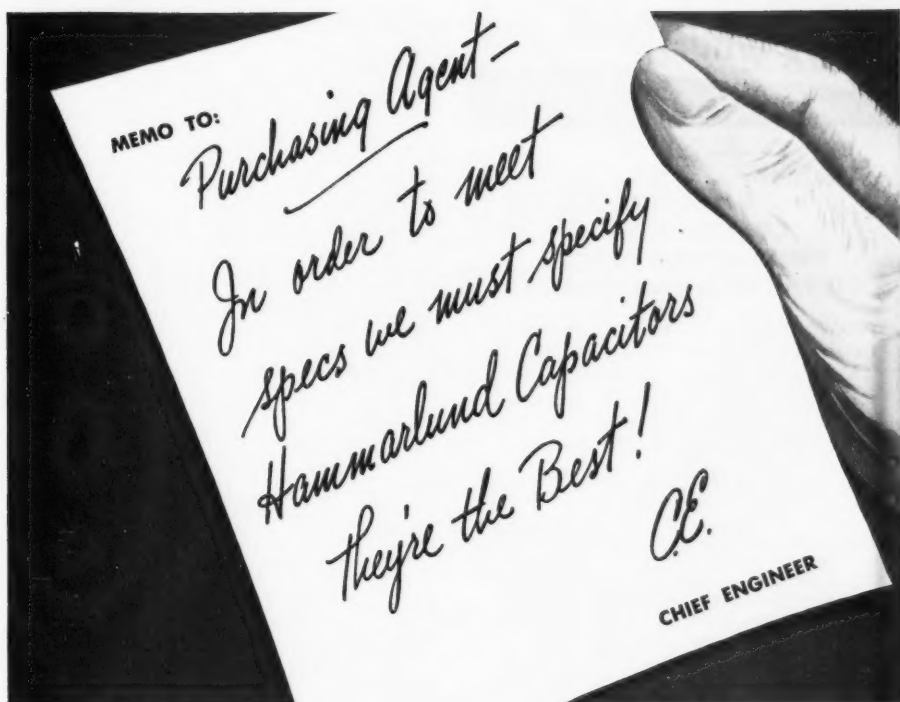 MEMO TO:
Purchasing Agent —
In order to meet
specs we must specify
Hammarlund Capacitors
they're the Best!
C.E.
CHIEF ENGINEER